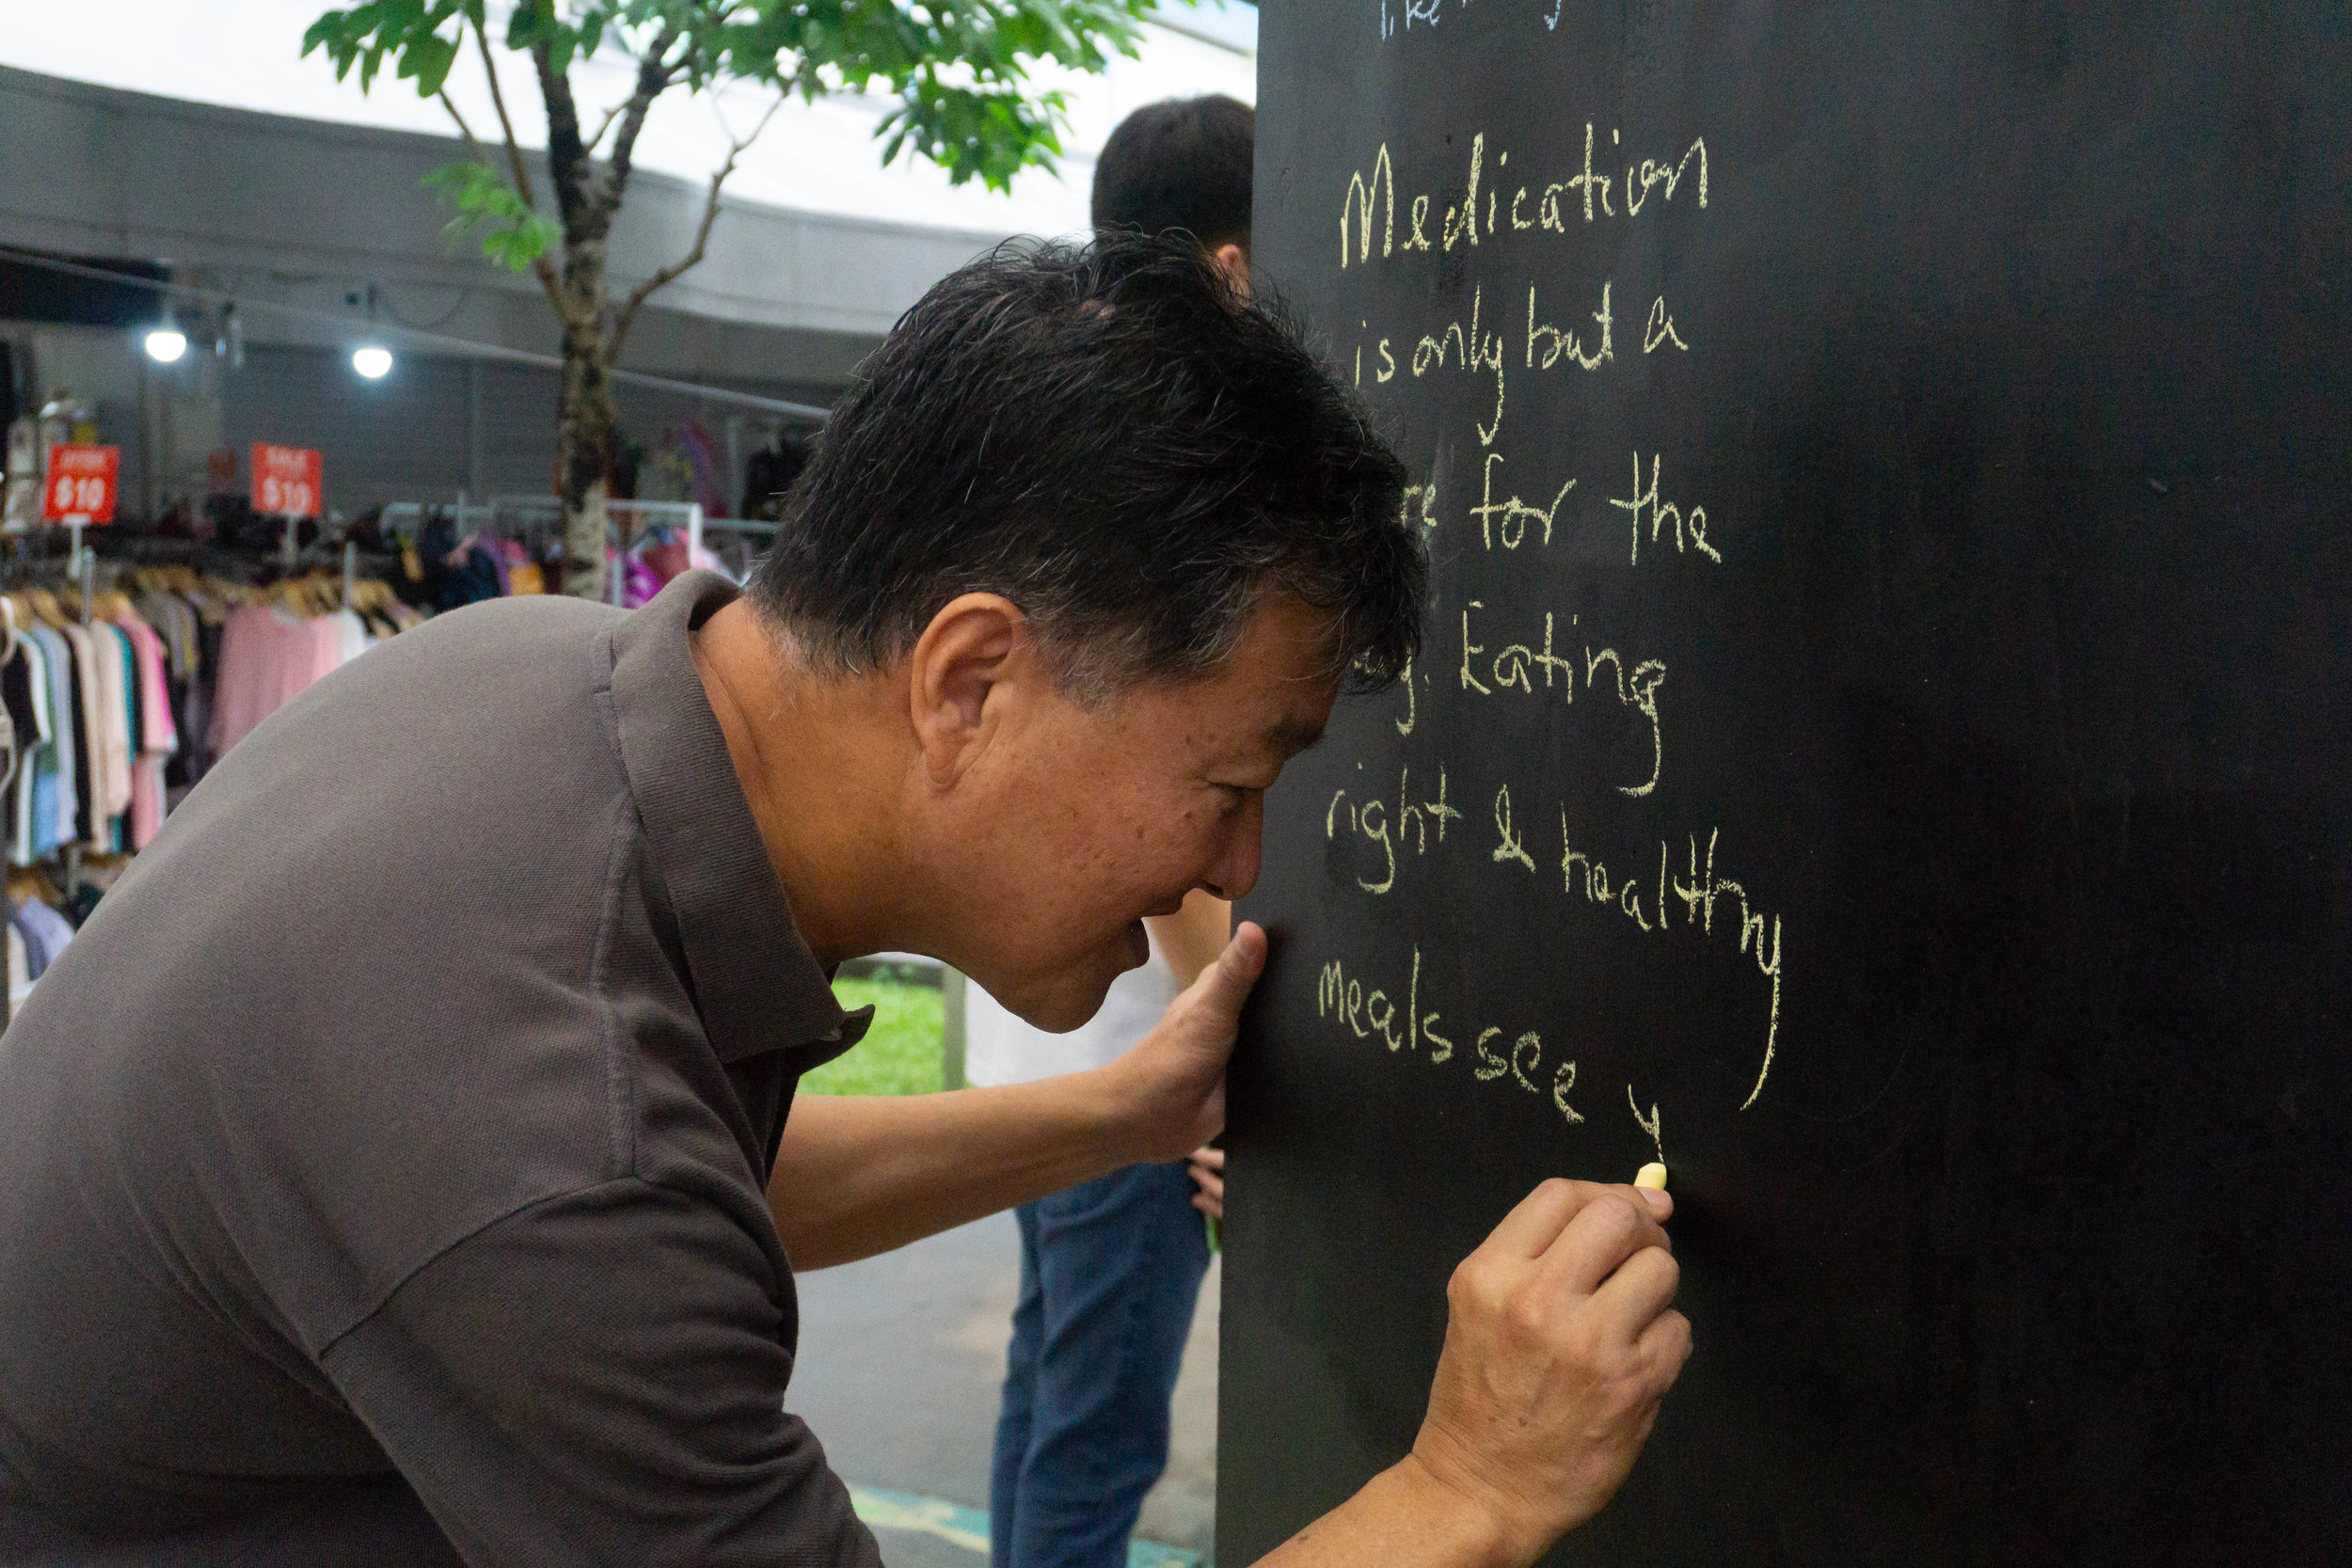 like
Medication
is only but a
for the
Eating
right & healthy
meals see y
$10
SALE
$10